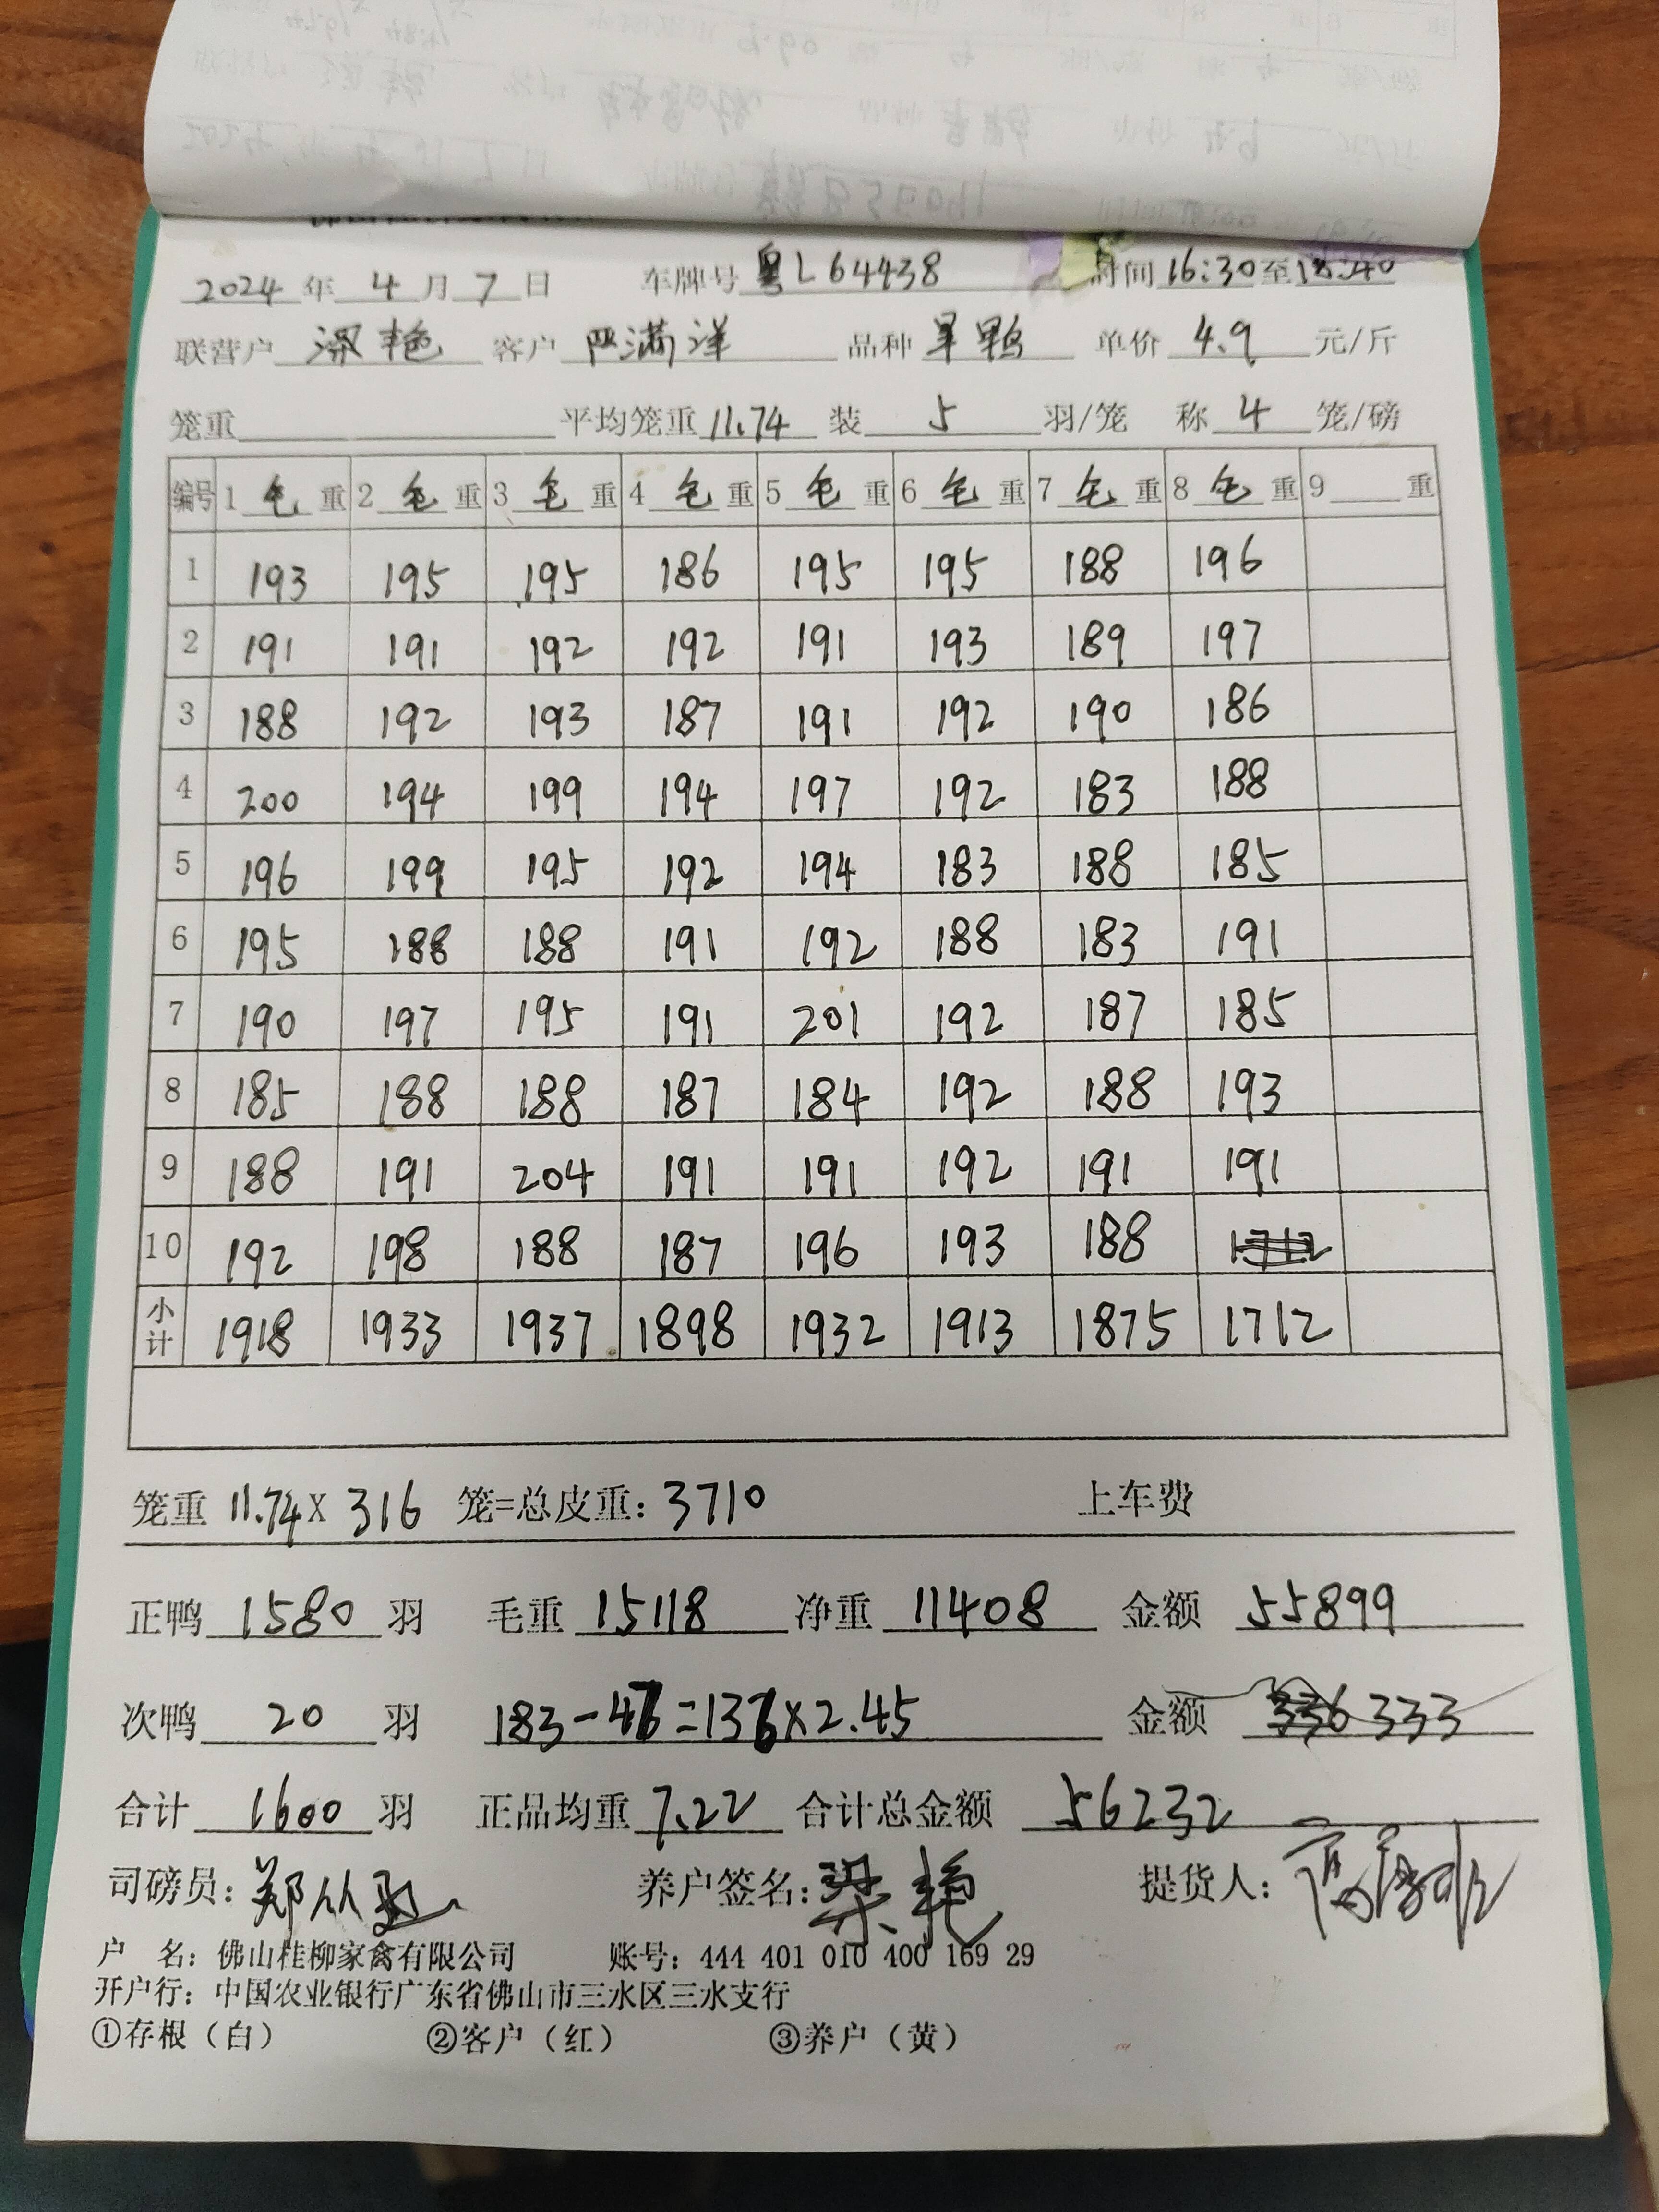 2024年4月7日 车牌号 粤L64438 时间16:30至18:40
联营户 梁艳 客户 严满洋 品种 旱鸭 单价 4.9 元/斤
笼重 平均笼重 11.74 装 5 羽/笼 称 4 笼/磅
编号 1 毛 重 2 毛 重 3 毛 重 4 毛 重 5 毛 重 6 毛 重 7 毛 重 8 毛 重 9 重
1 193 195 195 186 195 195 188 196
2 191 191 192 192 191 193 189 197
3 188 192 193 187 191 192 190 186
4 200 194 199 194 197 192 183 188
5 196 199 195 192 194 183 188 185
6 195 188 188 191 192 188 183 191
7 190 197 195 191 201 192 187 185
8 185 188 188 187 184 192 188 193
9 188 191 204 191 191 192 191 191
10 192 198 188 187 196 193 188 1712
小计 1918 1933 1937 1898 1932 1913 1875 1712
笼重 11.74 X 316 笼=总皮重: 3710 上车费
正鸭 1580 羽 毛重 15118 净重 11408 金额 55899
次鸭 20 羽 183-47=136×2.45 金额 336 333
合计 1600 羽 正品均重 7.22 合计总金额 56232
司磅员: 郑 养户签名: 梁艳 提货人:
户 名: 佛山桂柳家禽有限公司 账号: 444 401 010 400 169 29
开户行: 中国农业银行广东省佛山市三水区三水支行
①存根（白） ②客户（红） ③养户（黄）